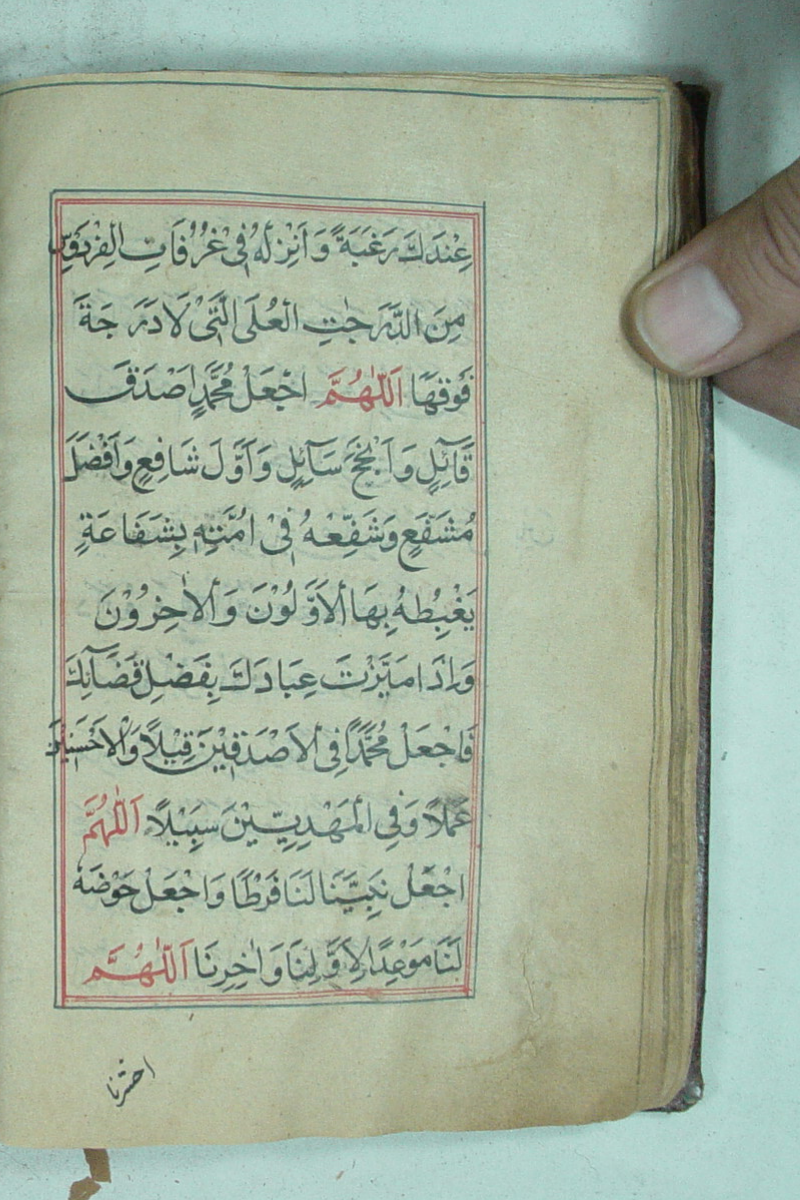 عِنْدَكَ رَغْبَةً وَاَنْزِلْهُ فِىْ غُرُفَاتِ الْفِرْدَوْسِ
مِنَ الدَّرَجٰتِ الْعُلَى الَّتِىْ لَا دَرَجَةَ
فَوْقَهَا اَللّٰهُمَّ اجْعَلْ مُحَمَّدًا اَصْدَقَ
قَآئِلٍ وَاَنْجَحَ سَآئِلٍ وَاَوَّلَ شَافِعٍ وَاَفْضَلَ
مُشَفَّعٍ وَشَفِّعْهُ فِىْ اُمَّتِهٖ بِشَفَاعَةٍ
يَغْبِطُهُ بِهَا الْاَوَّلُوْنَ وَالْاٰخِرُوْنَ
وَاِذَا مَيَّزْتَ عِبَادَكَ بِفَضْلِ قَضَآئِكَ
فَاجْعَلْ مُحَمَّدًا فِى الْاَصْدَقِيْنَ قِيْلًا وَالْاَحْسَنِيْنَ
عَمَلًا وَفِى الْمَهْدِيِّيْنَ سَبِيْلًا اَللّٰهُمَّ
اجْعَلْ نَبِيَّنَا لَنَا فَرَطًا وَاجْعَلْ حَوْضَهٗ
لَنَا مَوْعِدًا لِاَوَّلِنَا وَاٰخِرِنَا اَللّٰهُمَّ
احشرنا